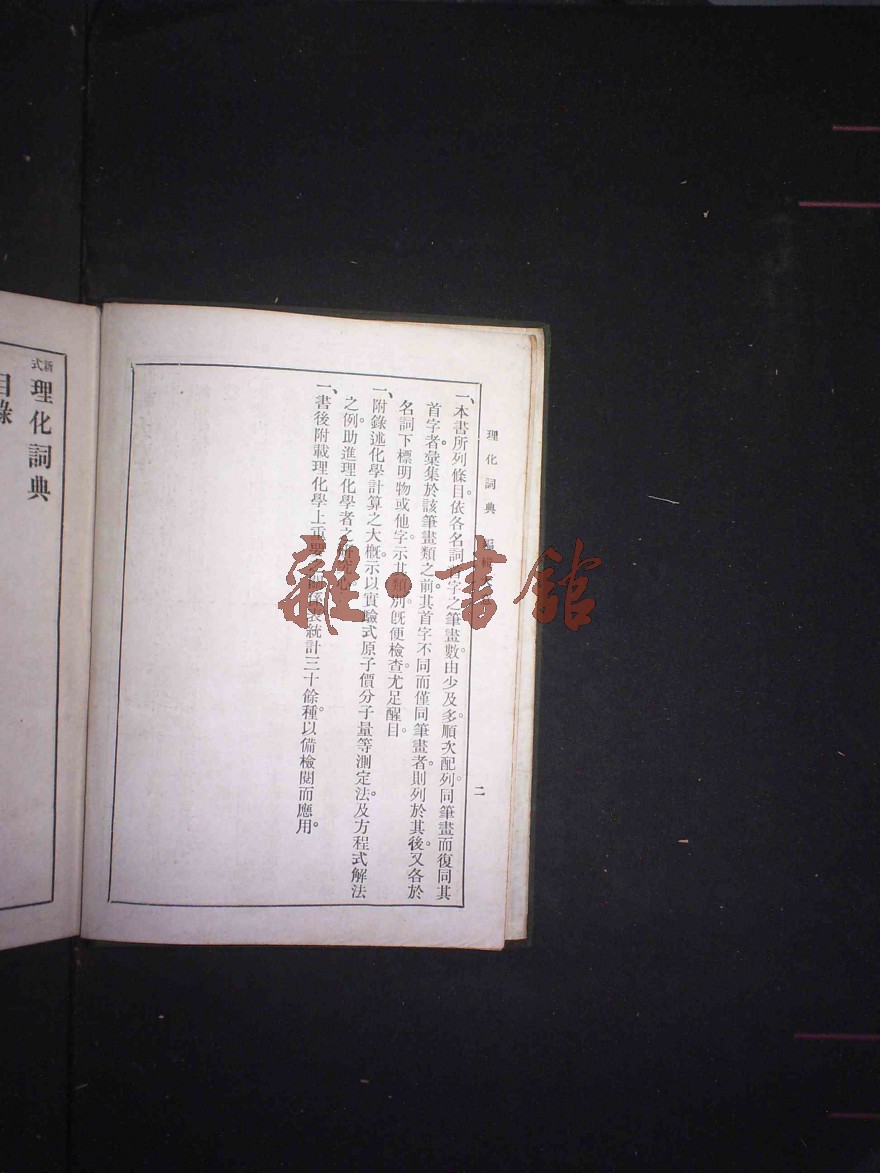 理化詞典 二
一、本書所列條目。依各名詞首字之筆畫數。由少及多。順次配列。同筆畫而復同其
首字者。彙集於該筆畫類之前。其首字不同而僅同筆畫者。則列於其後。又各於
名詞下標明物或他字。示其類別。旣便檢查。尤足醒目。
一、附錄述化學計算之大槪。示以實驗式原子價分子量等測定法。及方程式解法
之例。助進理化學者之心
一、書後附載理化學上重要之表。統計三十餘種。以備檢閱而應用。
新式 理化詞典
目錄
雜·書館